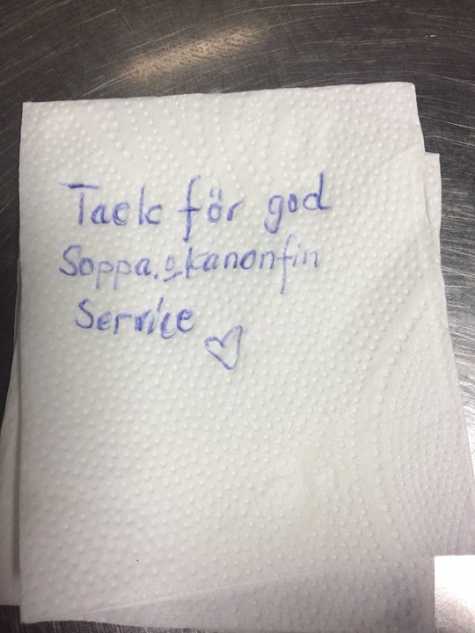 Tack för god
Soppa. o kanonfin
Service